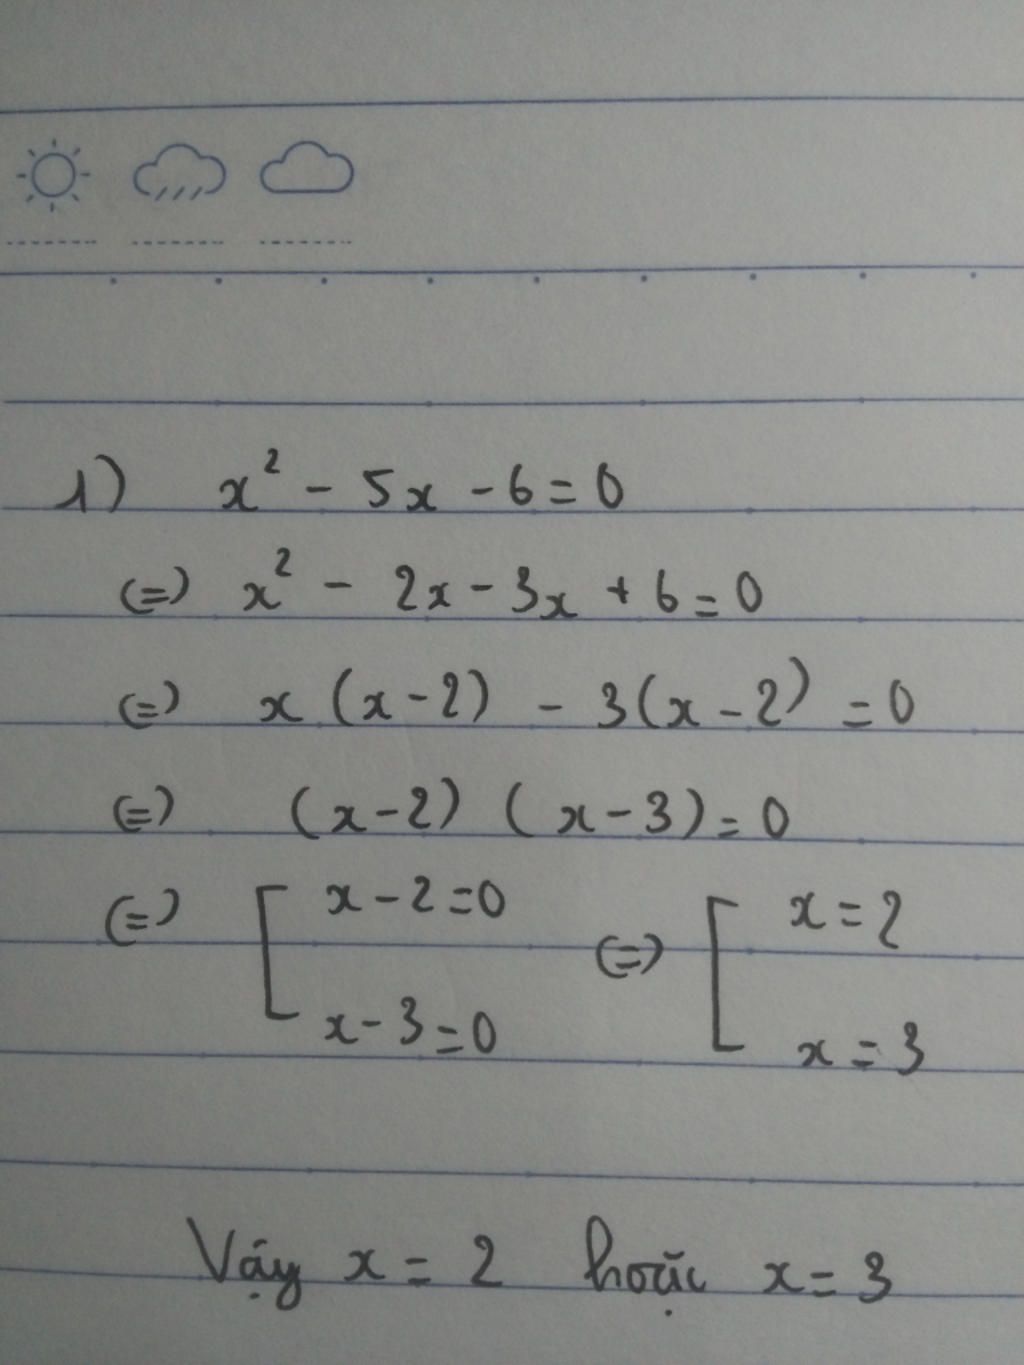 1) x² - 5x - 6 = 0
(=) x² - 2x - 3x + 6 = 0
(=) x (x - 2) - 3(x - 2) = 0
(=) (x - 2) (x - 3) = 0
(=) [ x - 2 = 0 (=) [ x = 2
x - 3 = 0 x = 3
Vậy x = 2 hoặc x = 3